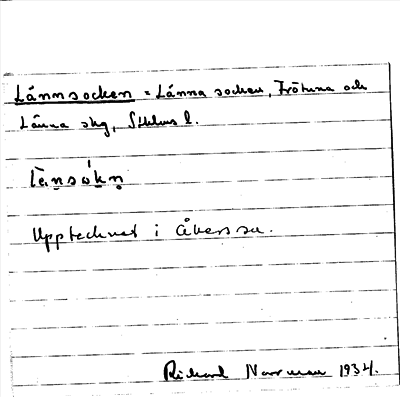 Lännsocken = Länna socken, Frötuna och
Länna skg, Sthlms l.
länsókn
Upptecknat i Åkers sn.
Rickard Norrman 1934.